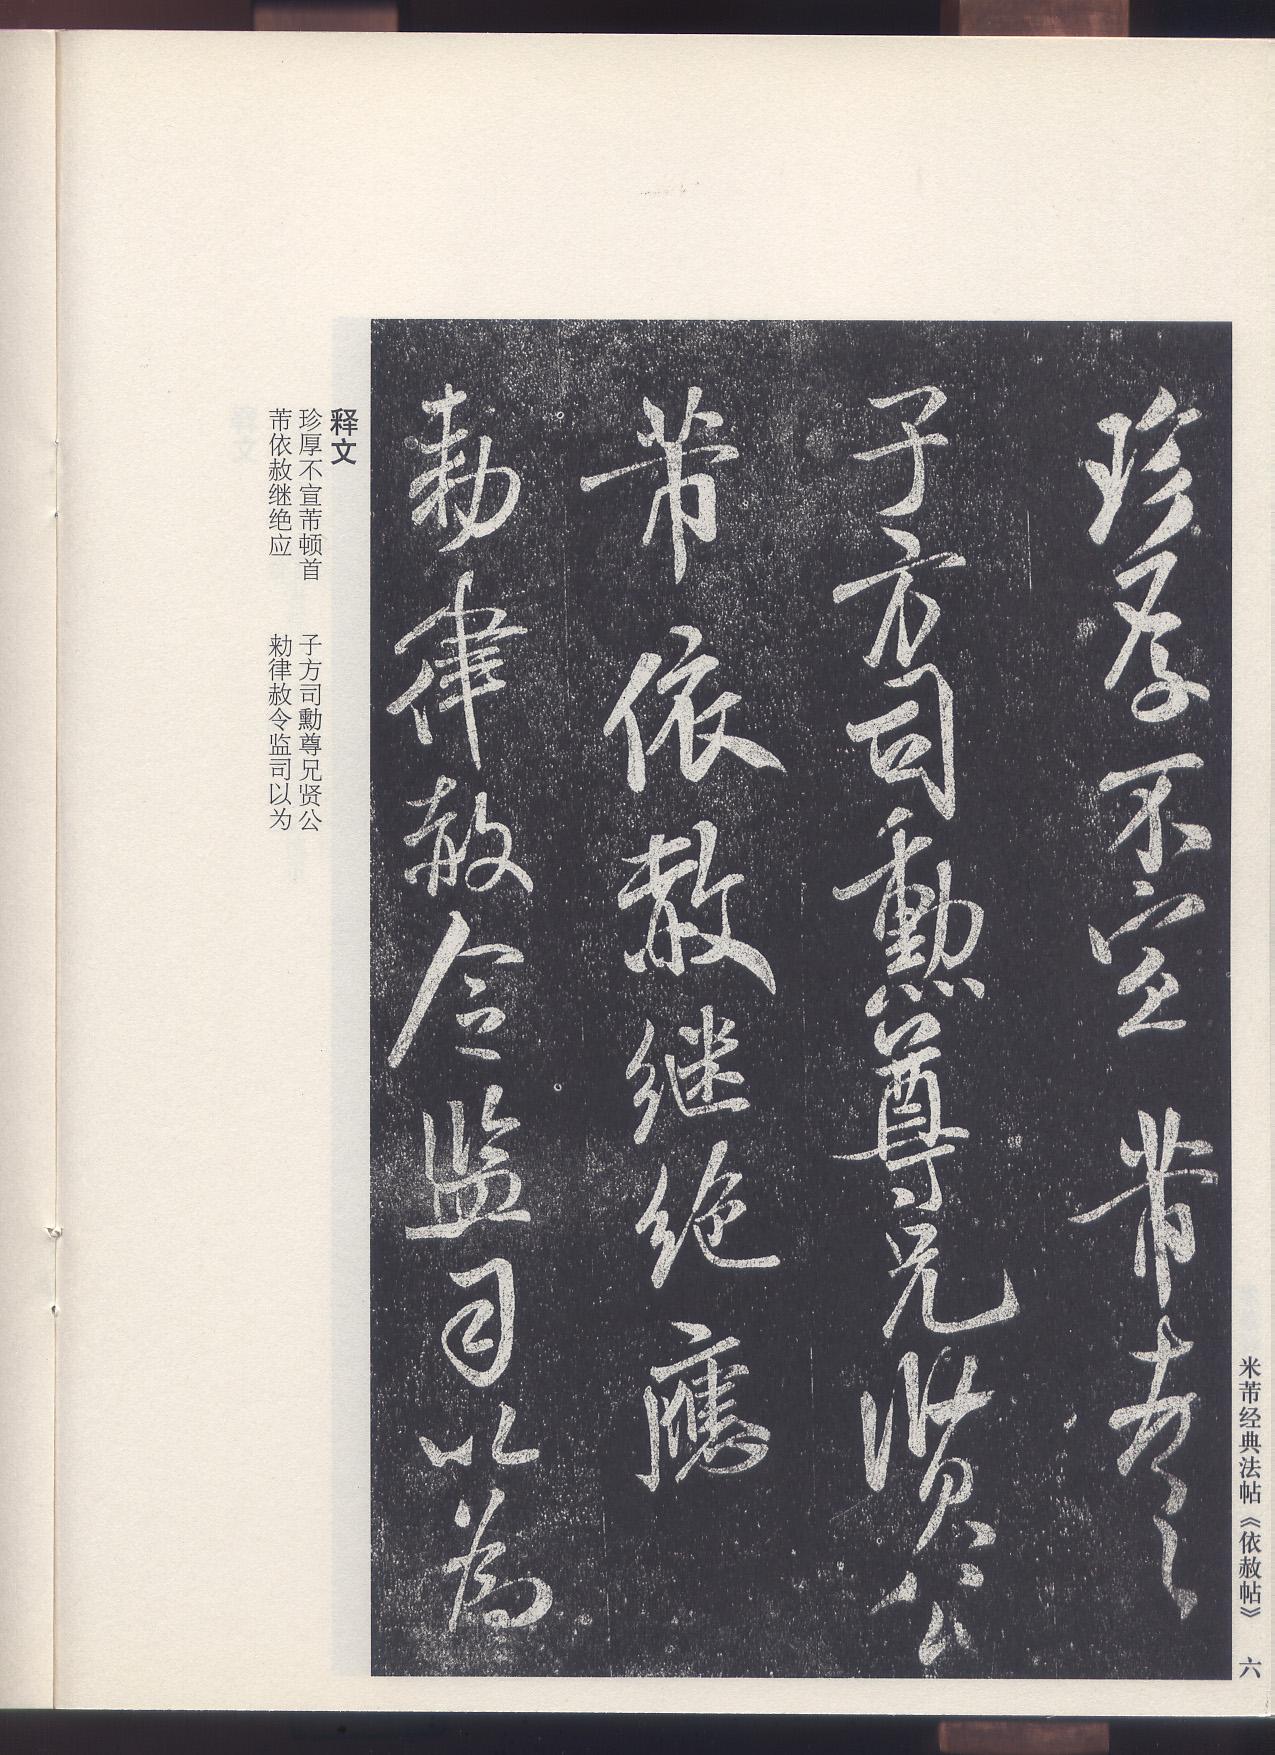 珍厚不宣芾顿首
子方司勳尊兄贤公
芾依赦继绝應
勑律赦令监司以為
释文
珍厚不宣芾顿首 子方司勳尊兄贤公
芾依赦继绝应 勑律赦令监司以为
米芾经典法帖《依赦帖》 六